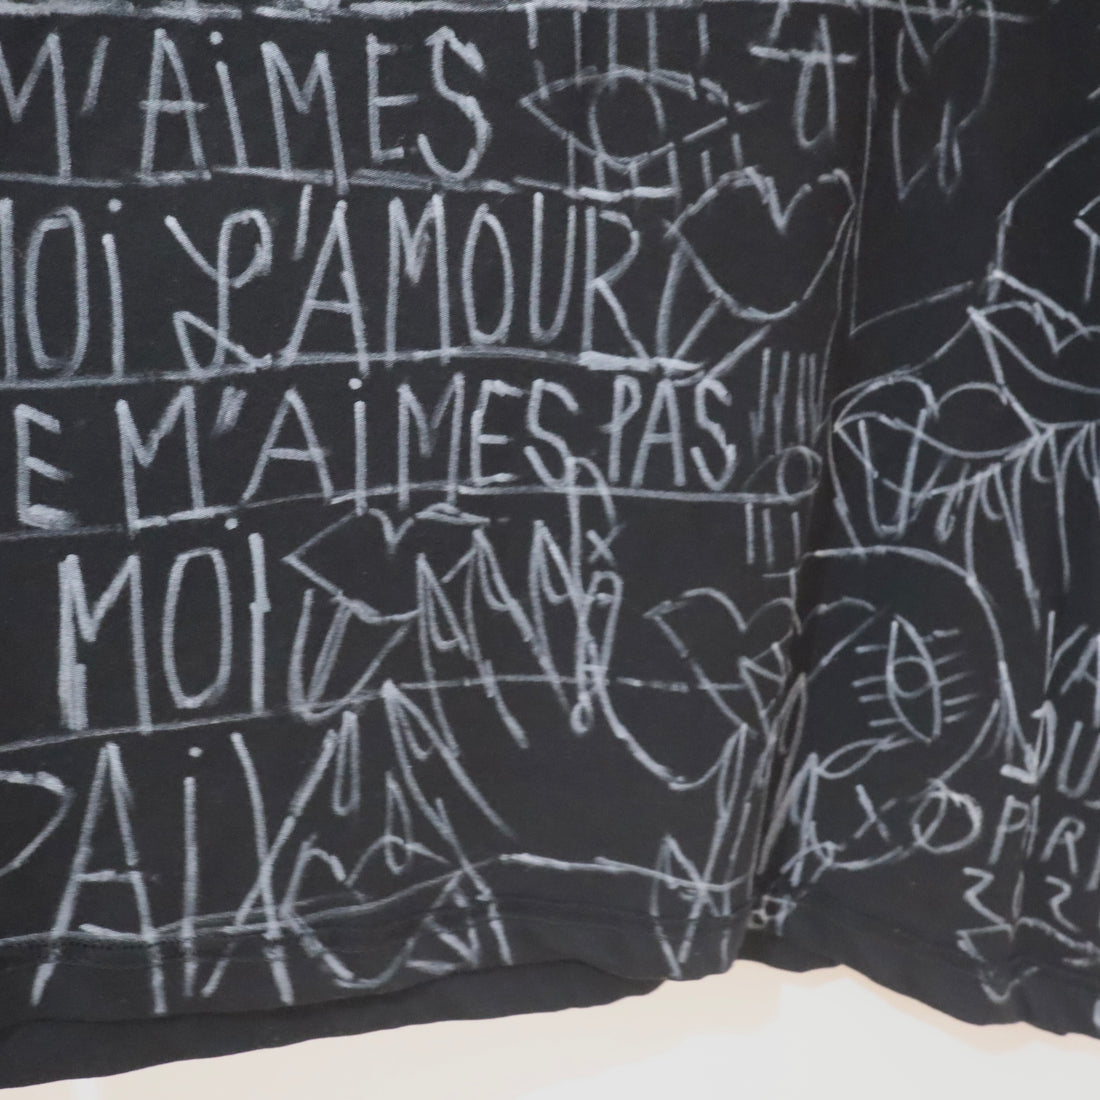 M'AiMES
MOi L'AMOUR
E M'AiMES PAS
MOI
PAiX